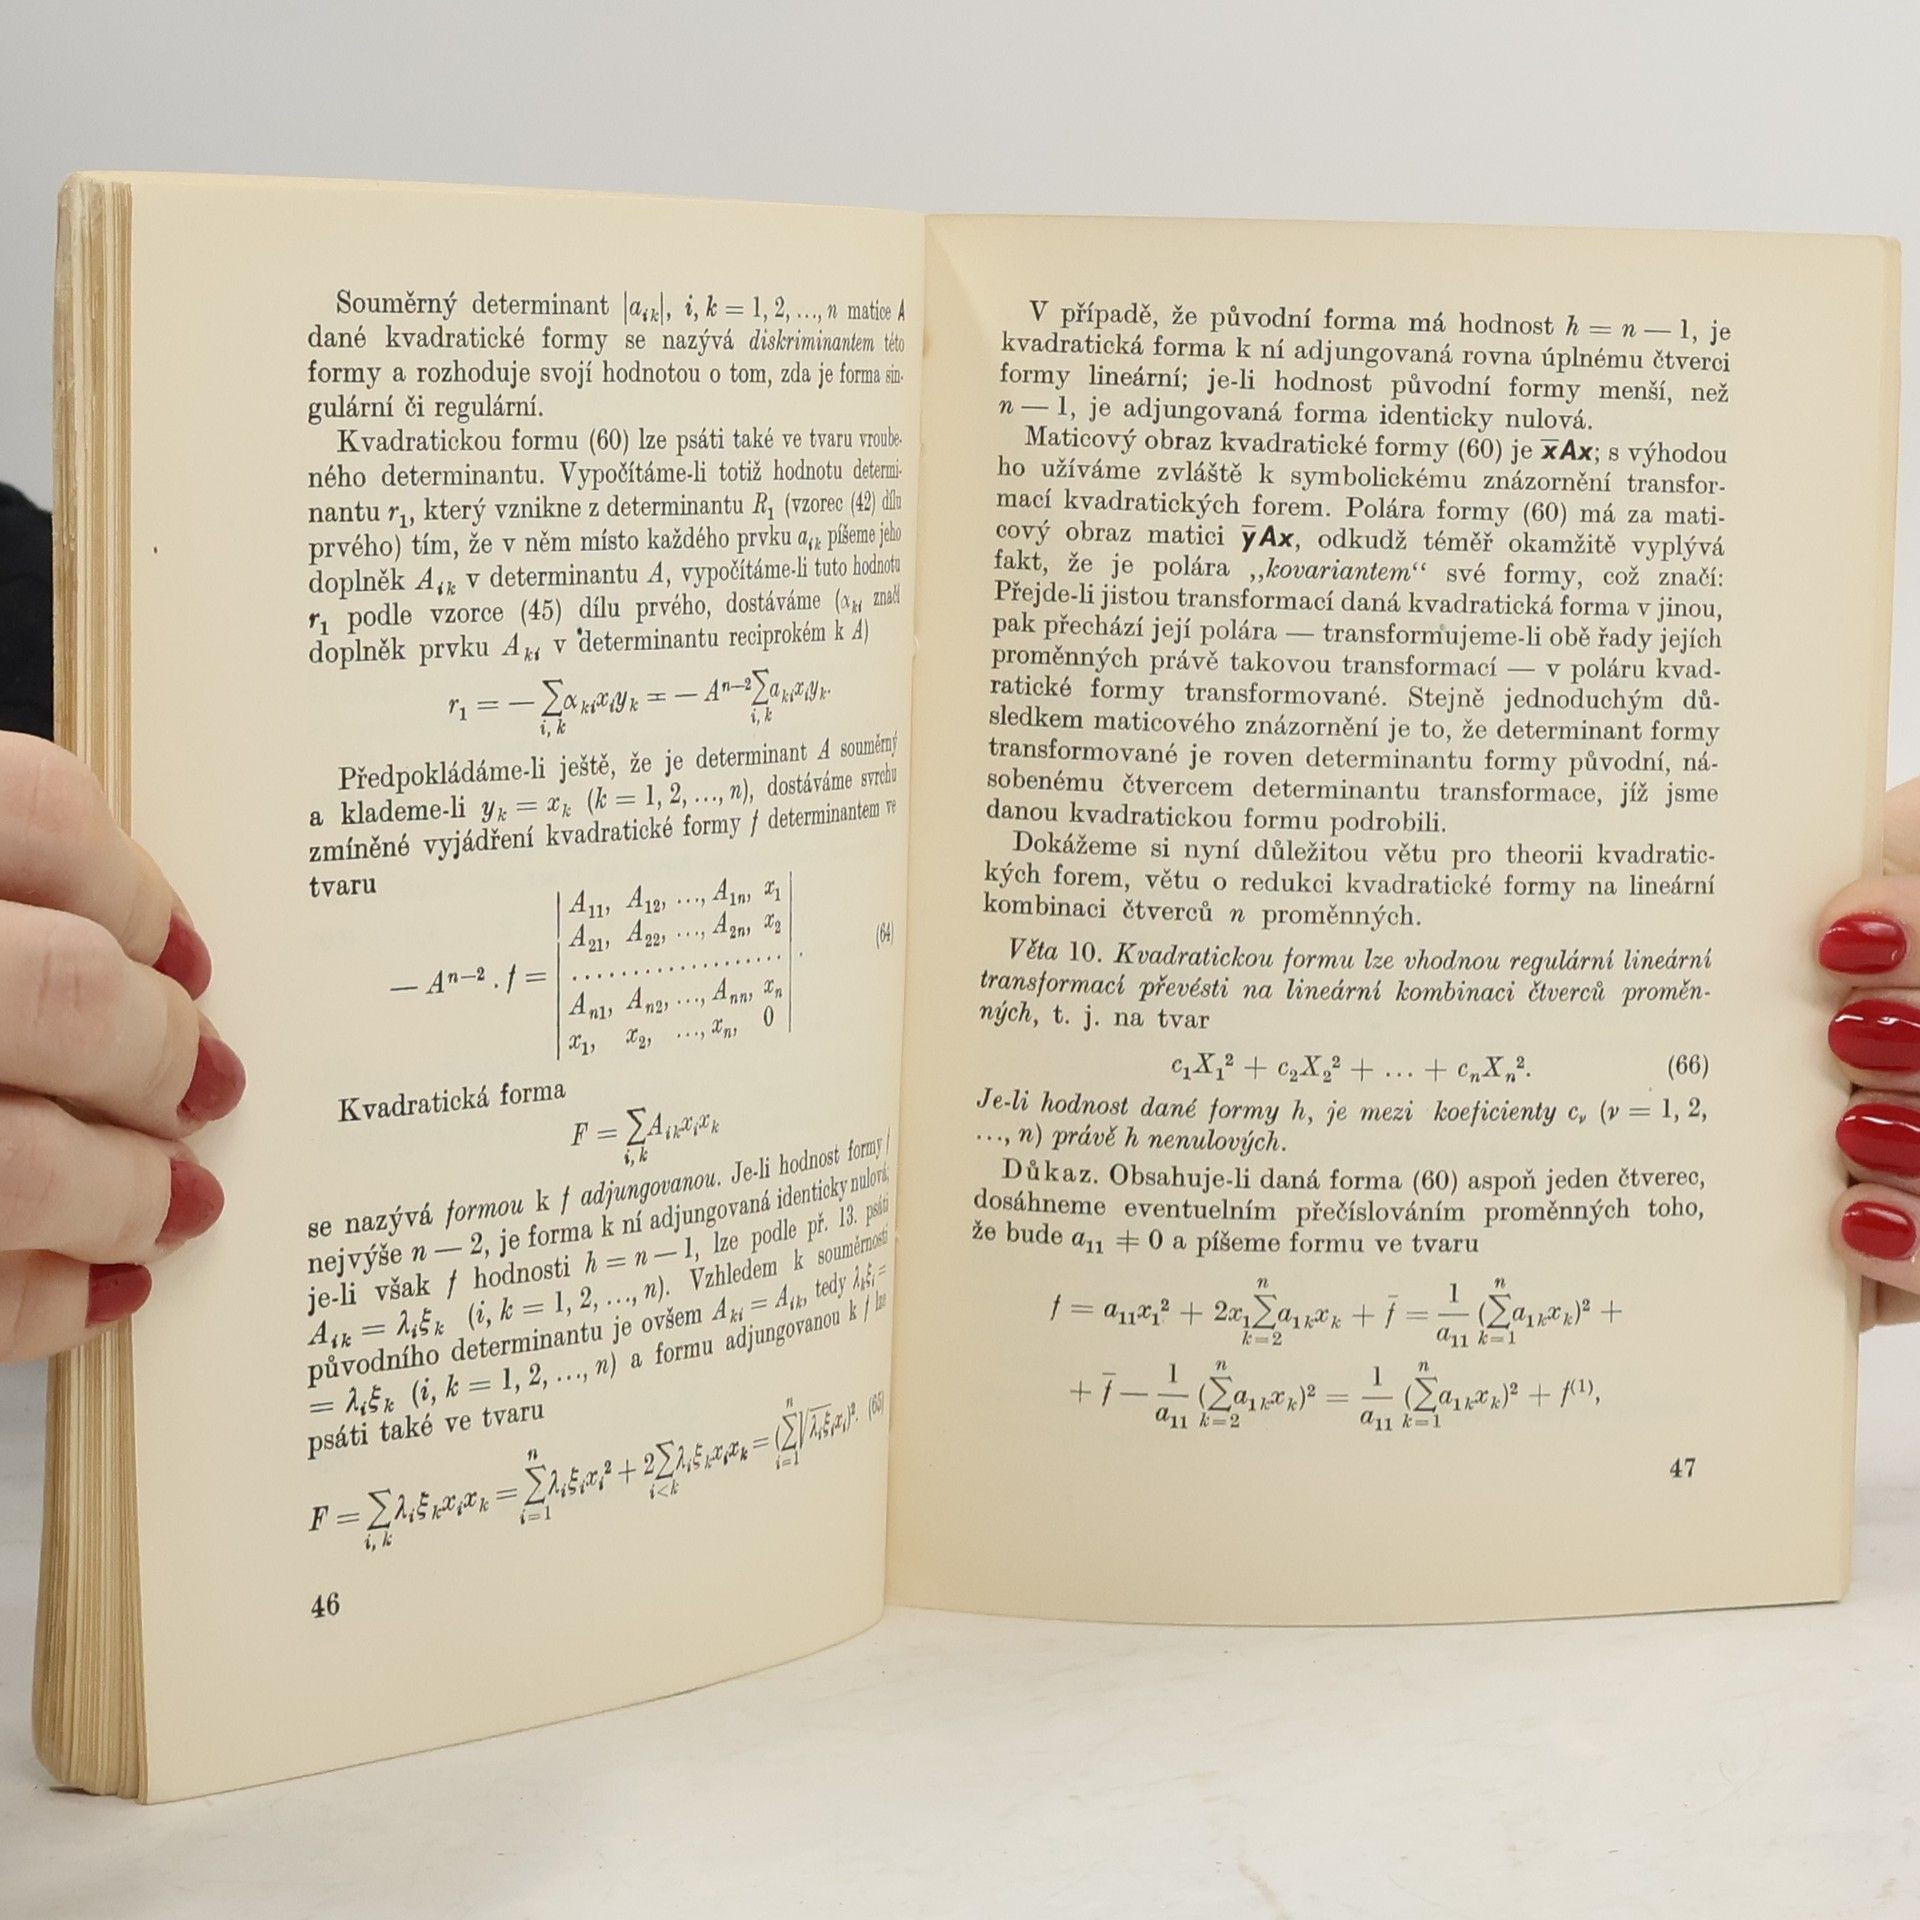 Souměrný determinant |aᵢₖ|, i, k = 1, 2, ..., n matice A
dané kvadratické formy se nazývá diskriminantem této
formy a rozhoduje svojí hodnotou o tom, zda je forma sin-
gulární či regulární.
Kvadratickou formu (60) lze psáti také ve tvaru vroube-
ného determinantu. Vypočítáme-li totiž hodnotu determi-
nantu r₁, který vznikne z determinantu R₁ (vzorec (42) dílu
prvého) tím, že v něm místo každého prvku aᵢₖ píšeme jeho
doplněk Aᵢₖ v determinantu A, vypočítáme-li tuto hodnotu
r₁ podle vzorce (45) dílu prvého, dostáváme (αₖᵢ značí
doplněk prvku Aₖᵢ v determinantu reciprokém k A)
r₁ = — ∑ αₖᵢxᵢyₖ = — Aⁿ⁻² ∑ aₖᵢxᵢyₖ.
i, k i, k
Předpokládáme-li ještě, že je determinant A souměrný
a klademe-li yₖ = xₖ (k = 1, 2, ..., n), dostáváme svrchu
zmíněné vyjádření kvadratické formy f determinantem ve
tvaru
A₁₁, A₁₂, ..., A₁ₙ, x₁
A₂₁, A₂₂, ..., A₂ₙ, x₂
— Aⁿ⁻² . f = ..................... . (64)
Aₙ₁, Aₙ₂, ..., Aₙₙ, xₙ
x₁, x₂, ..., xₙ, 0
Kvadratická forma
F = ∑ Aᵢₖxᵢxₖ
i, k
se nazývá formou k f adjungovanou. Je-li hodnost formy f
nejvýše n — 2, je forma k ní adjungovaná identicky nulová;
je-li však f hodnosti h = n — 1, lze podle př. 13. psáti
Aᵢₖ = λᵢξₖ (i, k = 1, 2, ..., n). Vzhledem k souměrnosti
původního determinantu je ovšem Aₖᵢ = Aᵢₖ, tedy λₖξᵢ =
= λᵢξₖ (i, k = 1, 2, ..., n) a formu adjungovanou k f lze
psáti také ve tvaru
n n
F = ∑ λᵢξₖxᵢxₖ = ∑ λᵢξᵢxᵢ² + 2∑ λᵢξₖxᵢxₖ = (∑ √λᵢξᵢ xᵢ)². (65)
i, k i=1 i<k i=1
46
V případě, že původní forma má hodnost h = n — 1, je
kvadratická forma k ní adjungovaná rovna úplnému čtverci
formy lineární; je-li hodnost původní formy menší, než
n — 1, je adjungovaná forma identicky nulová.
Maticový obraz kvadratické formy (60) je x̄Ax; s výhodou
ho užíváme zvláště k symbolickému znázornění transfor-
mací kvadratických forem. Polára formy (60) má za mati-
cový obraz matici ȳAx, odkudž téměř okamžitě vyplývá
fakt, že je polára „kovariantem“ své formy, což značí:
Přejde-li jistou transformací daná kvadratická forma v jinou,
pak přechází její polára — transformujeme-li obě řady jejích
proměnných právě takovou transformací — v poláru kvad-
ratické formy transformované. Stejně jednoduchým dů-
sledkem maticového znázornění je to, že determinant formy
transformované je roven determinantu formy původní, ná-
sobenému čtvercem determinantu transformace, jíž jsme
danou kvadratickou formu podrobili.
Dokážeme si nyní důležitou větu pro theorii kvadratic-
kých forem, větu o redukci kvadratické formy na lineární
kombinaci čtverců n proměnných.
Věta 10. Kvadratickou formu lze vhodnou regulární lineární
transformací převésti na lineární kombinaci čtverců proměn-
ných, t. j. na tvar
c₁X₁² + c₂X₂² + ... + cₙXₙ². (66)
Je-li hodnost dané formy h, je mezi koeficienty cᵥ (ν = 1, 2,
..., n) právě h nenulových.
Důkaz. Obsahuje-li daná forma (60) aspoň jeden čtverec,
dosáhneme eventuelním přečíslováním proměnných toho,
že bude a₁₁ ≠ 0 a píšeme formu ve tvaru
n 1 n
f = a₁₁x₁² + 2x₁∑ a₁ₖxₖ + f̄ = — (∑ a₁ₖxₖ)² +
k=2 a₁₁ k=1
1 n 1 n
+ f̄ — — (∑ a₁ₖxₖ)² = — (∑ a₁ₖxₖ)² + f⁽¹⁾,
a₁₁ k=2 a₁₁ k=1
47